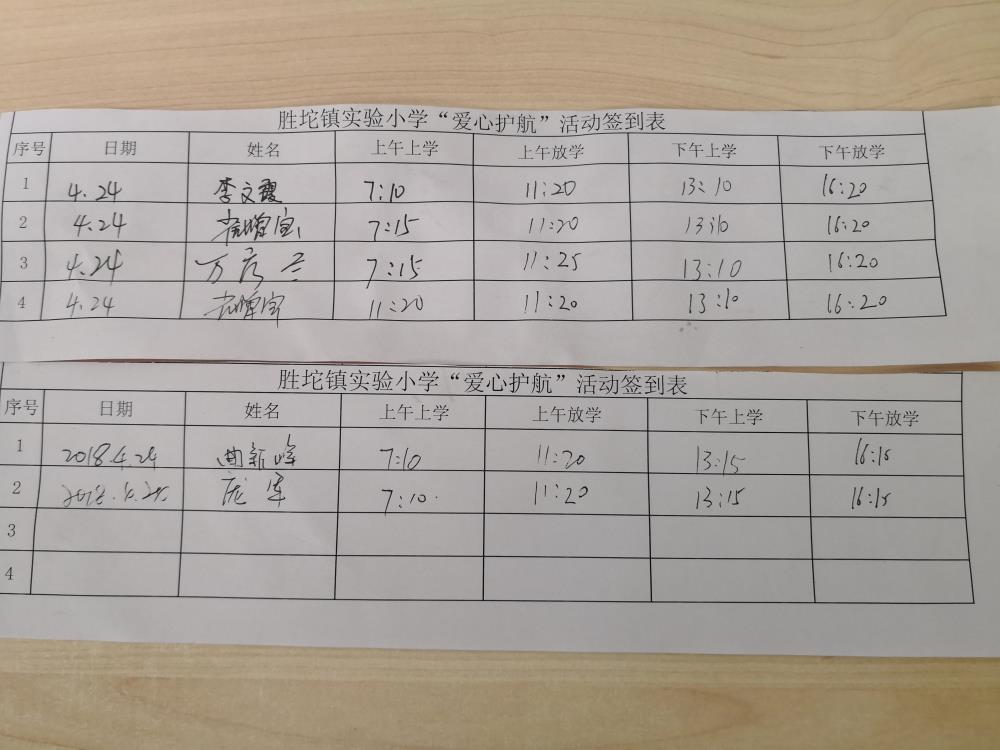 胜坨镇实验小学“爱心护航”活动签到表
序号 日期 姓名 上午上学 上午放学 下午上学 下午放学
1 4.24 李文霞 7:10 11:20 13:10 16:20
2 4.24 7:15 11:20 13:10 16:20
3 4.24 7:15 11:25 13:10 16:20
4 4.24 11:20 11:20 13:10 16:20
胜坨镇实验小学“爱心护航”活动签到表
序号 日期 姓名 上午上学 上午放学 下午上学 下午放学
1 2018.4.24 曲新峰 7:10 11:20 13:15 16:15
2 庞军 7:10 11:20 13:15 16:15
3
4